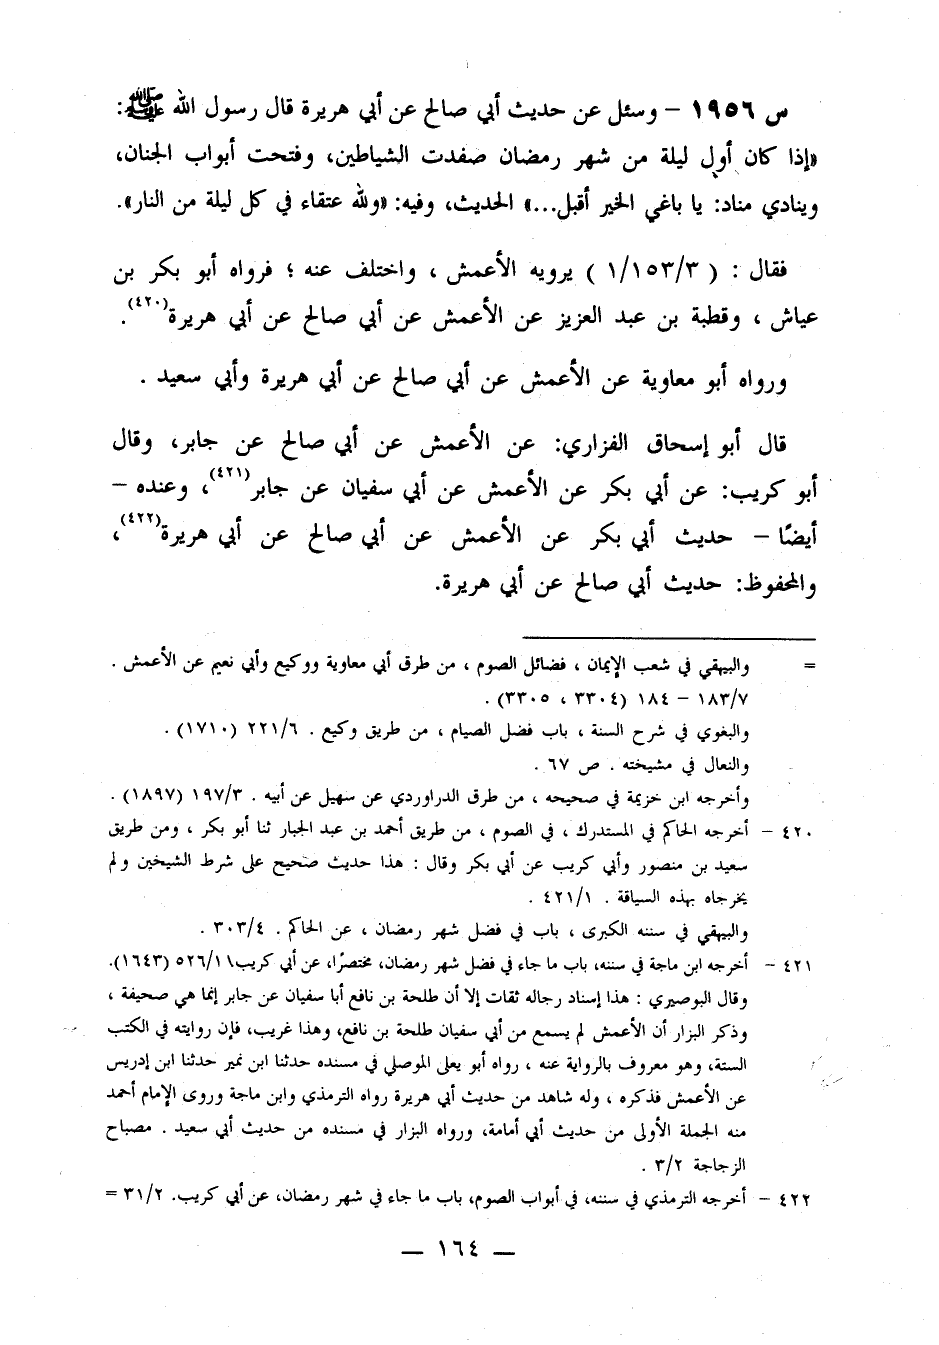 س ١٩٥٦ – وسئل عن حديث أبي صالح عن أبي هريرة قال رسول الله ﷺ:
«إذا كان أول ليلة من شهر رمضان صفدت الشياطين، وفتحت أبواب الجنان،
وينادي مناد: يا باغي الخير أقبل...» الحديث، وفيه: «ولله عتقاء في كل ليلة من النار».
فقال : ( ١/١٥٣/٣ ) يرويه الأعمش ، واختلف عنه ؛ فرواه أبو بكر بن
عياش ، وقطبة بن عبد العزيز عن الأعمش عن أبي صالح عن أبي هريرة(٤٢٠) .
ورواه أبو معاوية عن الأعمش عن أبي صالح عن أبي هريرة وأبي سعيد .
قال أبو إسحاق الفزاري: عن الأعمش عن أبي صالح عن جابر، وقال
أبو كريب: عن أبي بكر عن الأعمش عن أبي سفيان عن جابر(٤٢١)، وعنده –
أيضًا – حديث أبي بكر عن الأعمش عن أبي صالح عن أبي هريرة(٤٢٢)،
والمحفوظ: حديث أبي صالح عن أبي هريرة.
= والبيهقي في شعب الإيمان ، فضائل الصوم ، من طرق أبي معاوية ووكيع وأبي نعيم عن الأعمش .
١٨٣/٧ – ١٨٤ (٣٣٠٤ ، ٣٣٠٥) .
والبغوي في شرح السنة ، باب فضل الصيام ، من طريق وكيع . ٢٢١/٦ (١٧١٠) .
والنعال في مشيخته . ص ٦٧ .
وأخرجه ابن خزيمة في صحيحه ، من طرق الدراوردي عن سهيل عن أبيه . ١٩٧/٣ (١٨٩٧) .
٤٢٠ – أخرجه الحاكم في المستدرك ، في الصوم ، من طريق أحمد بن عبد الجبار ثنا أبو بكر ، ومن طريق
سعيد بن منصور وأبي كريب عن أبي بكر وقال : هذا حديث صحيح على شرط الشيخين ولم
يخرجاه بهذه السياقة . ٤٢١/١ .
والبيهقي في سننه الكبرى ، باب في فضل شهر رمضان ، عن الحاكم . ٣٠٣/٤ .
٤٢١ – أخرجه ابن ماجة في سننه، باب ما جاء في فضل شهر رمضان، مختصرًا، عن أبي كريب ٥٢٦/١ (١٦٤٣).
وقال البوصيري : هذا إسناد رجاله ثقات إلا أن طلحة بن نافع أبا سفيان عن جابر إنما هي صحيفة ،
وذكر البزار أن الأعمش لم يسمع من أبي سفيان طلحة بن نافع، وهذا غريب، فإن روايته في الكتب
الستة، وهو معروف بالرواية عنه ، رواه أبو يعلى الموصلي في مسنده حدثنا ابن نمير حدثنا ابن إدريس
عن الأعمش فذكره ، وله شاهد من حديث أبي هريرة رواه الترمذي وابن ماجة وروى الإمام أحمد
منه الجملة الأولى من حديث أبي أمامة، ورواه البزار في مسنده من حديث أبي سعيد . مصباح
الزجاجة ٣/٢ .
٤٢٢ – أخرجه الترمذي في سننه، في أبواب الصوم، باب ما جاء في شهر رمضان، عن أبي كريب. ٣١/٢ =
— ١٦٤ —